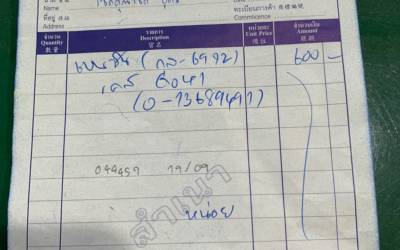 Name
ที่อยู่
Address
ทะเบียนการค้า
Commicence
จำนวน
Quantity
數量
รายการ
Description
貨名
หน่วยละ
Unit Price
價位
จำนวนเงิน
Amount
總銀
เบนซิน (กล-6992) 600 -
(0-73689491)
044457 19/09
หน่อย
สำเนา